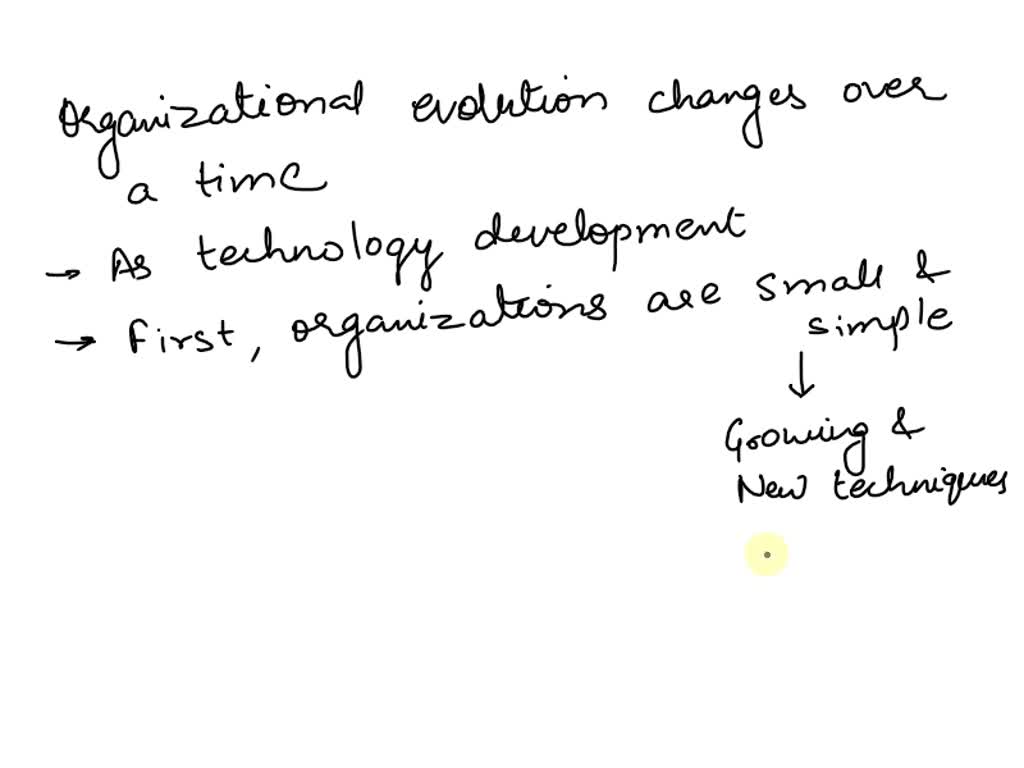 Organizational evolution changes over
a time
→ As technology development
→ First, organizations are small &
simple
↓
Growing &
New techniques